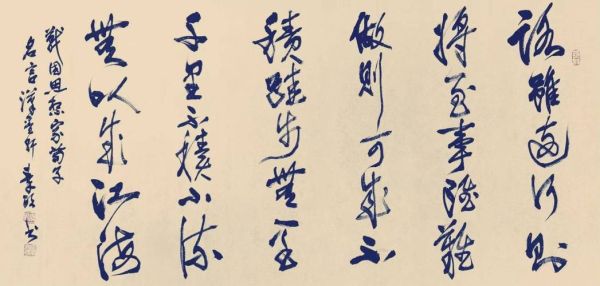 路雖遠行則
將至事雖難
做則可成不
積跬步無至
千里不積小流
無以成江海
戰國思想家荀子
名言